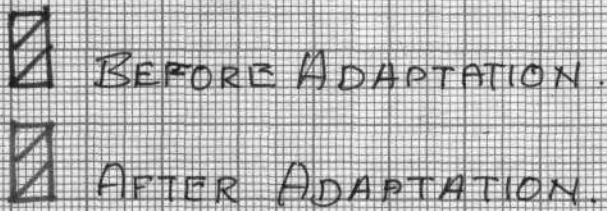 BEFORE ADAPTATION.
AFTER ADAPTATION.